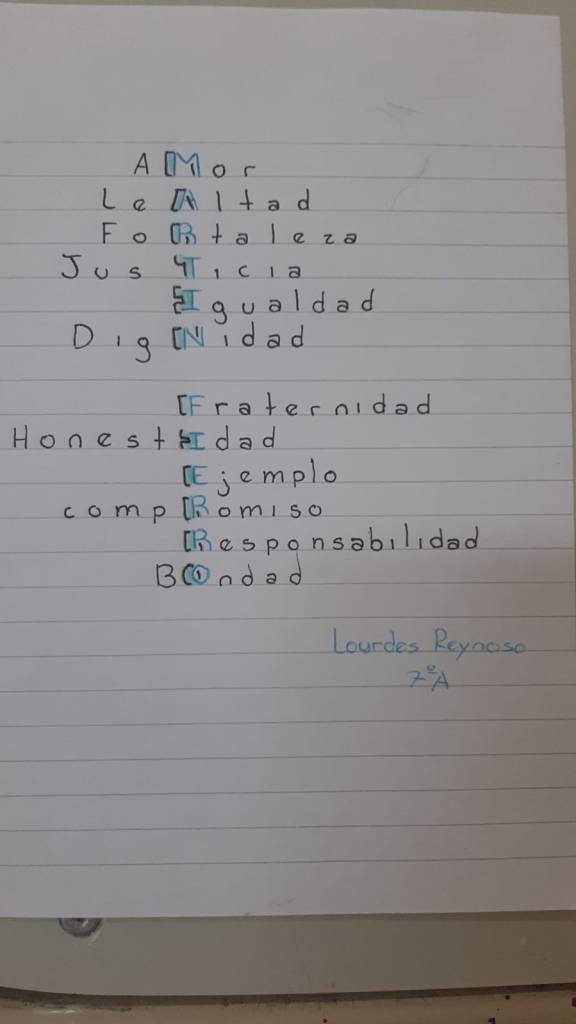 AMor
LeAltad
FoRtaleza
JusTicia
Igualdad
DigNidad
Fraternidad
HonestIdad
Ejemplo
compRomiso
Responsabilidad
BOndad
Lourdes Reynoso
7ºA